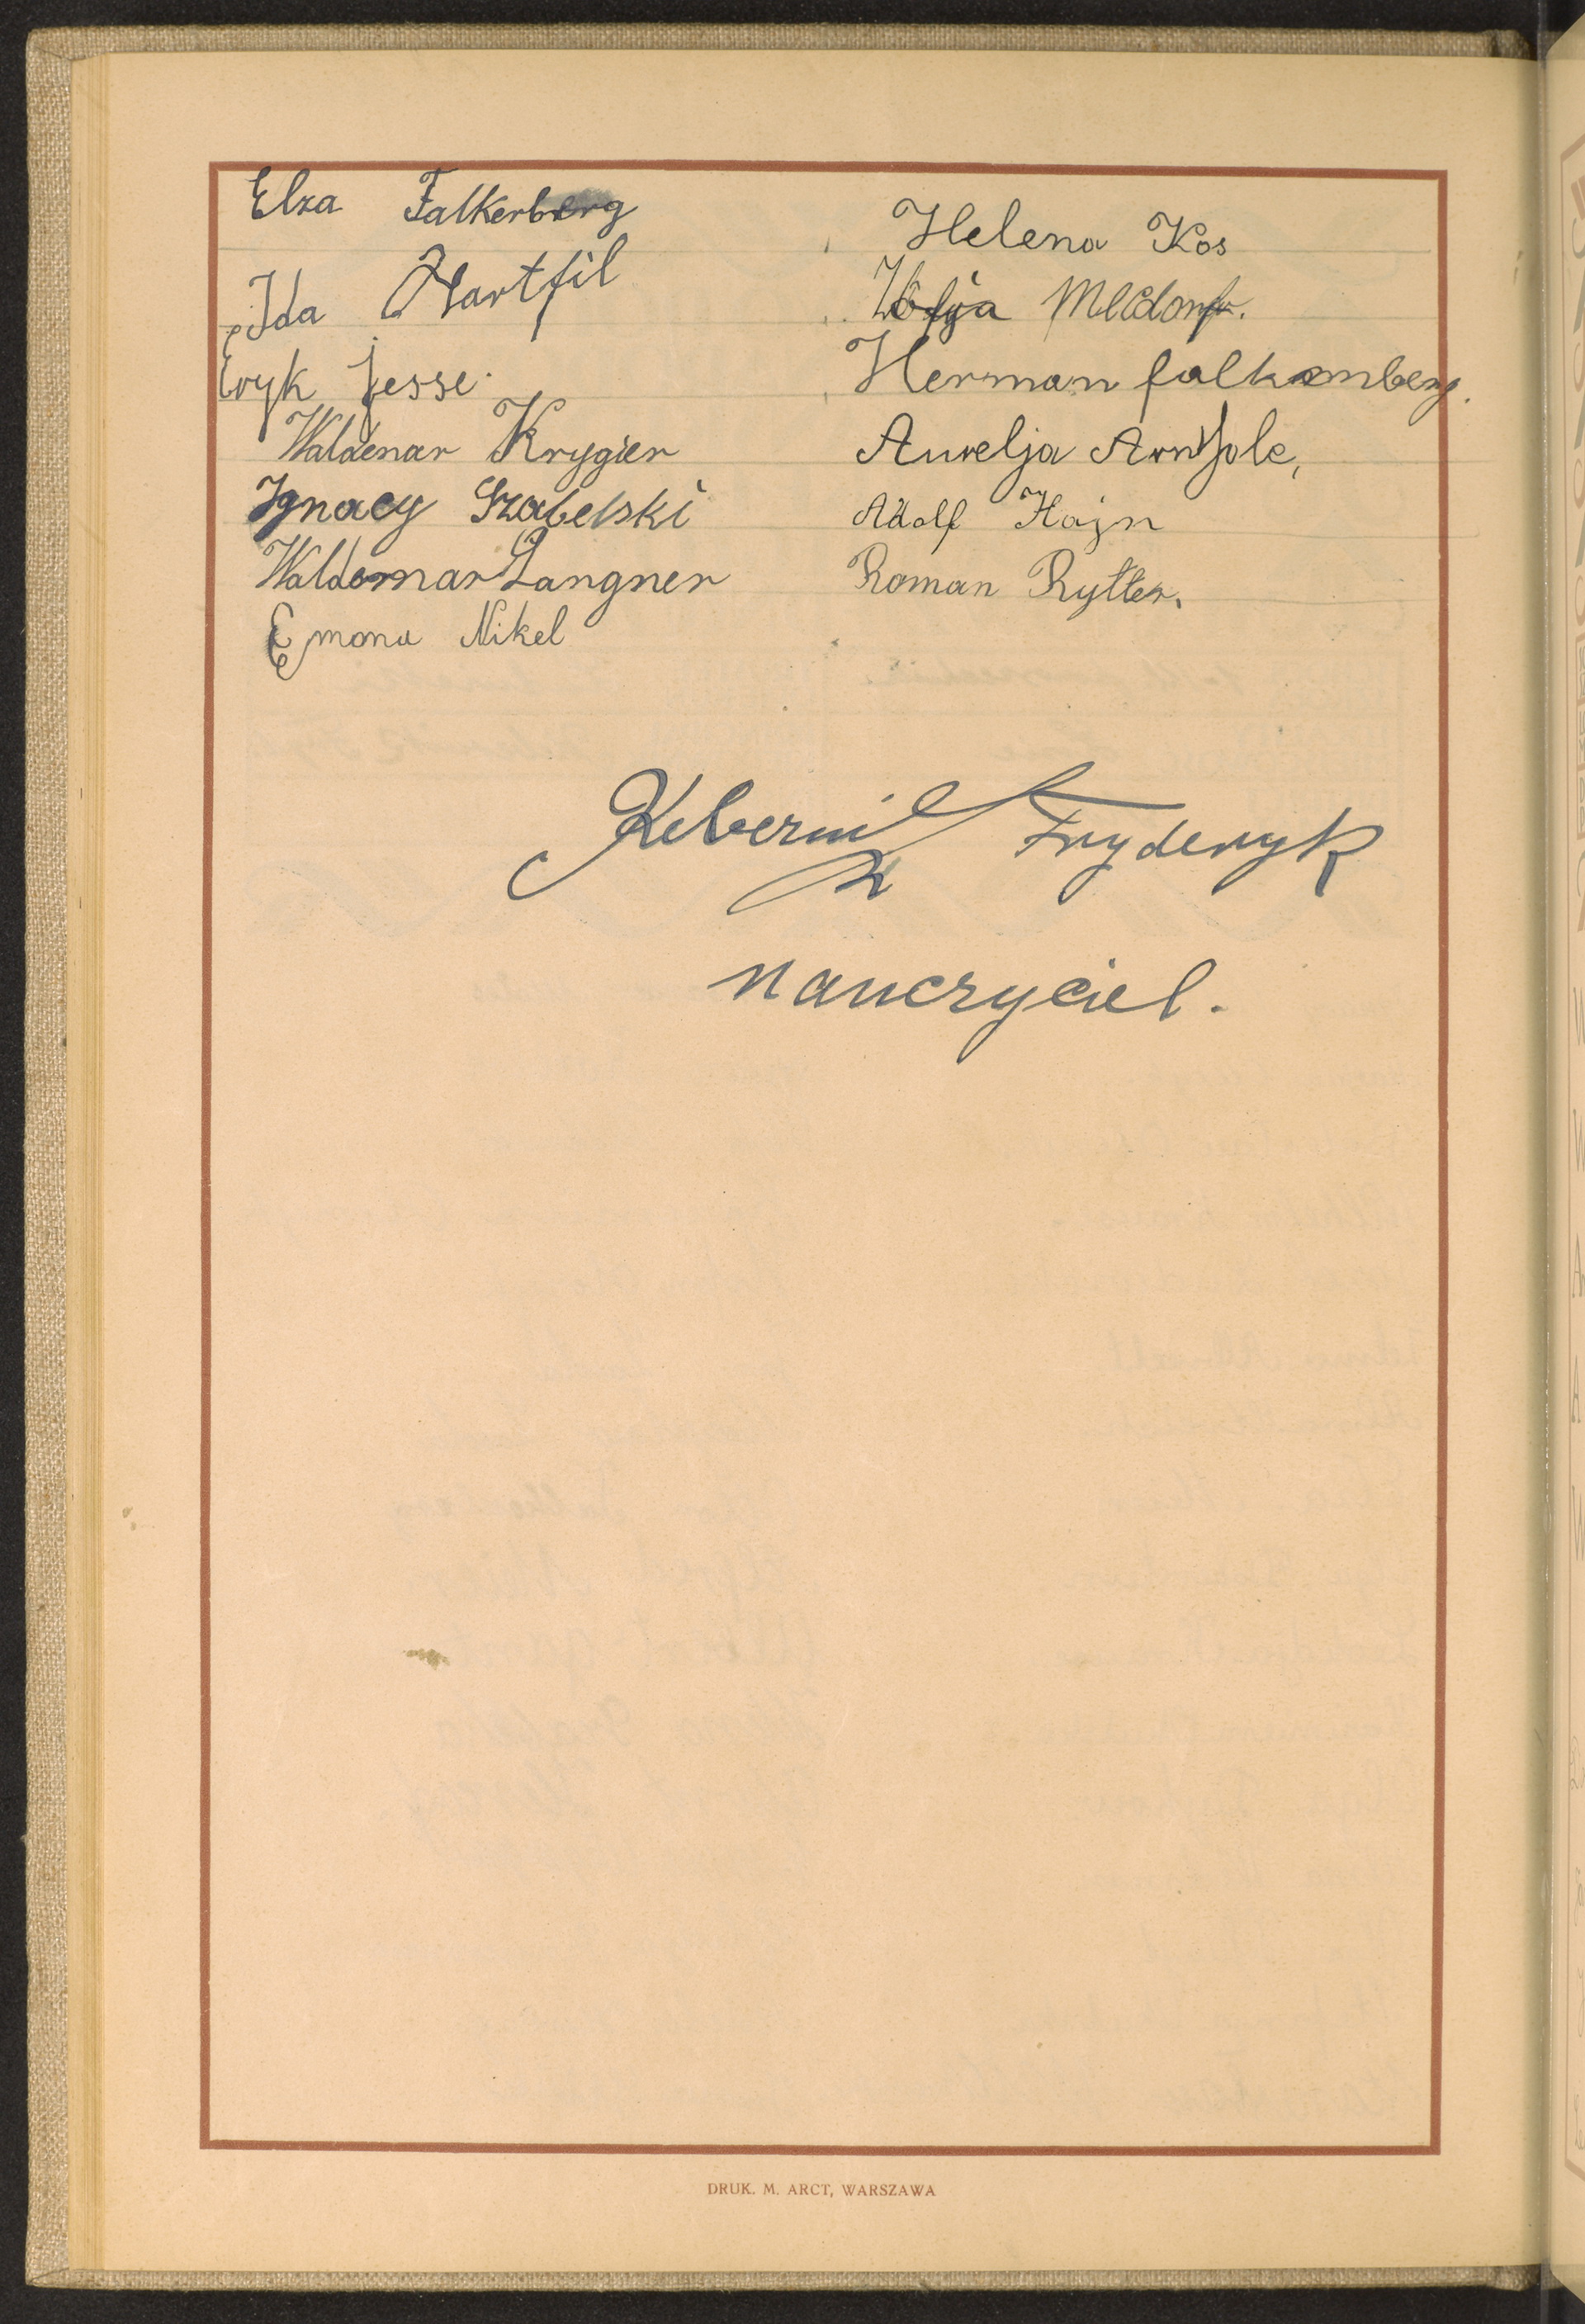 Elza Falkerberg
Ida Hartfil
Eryk Jesse.
Waldemar Krygier
Ignacy Szabelski
Waldemar Langner
Emma Nikel
Helena Kos
Zofja
Herman falkemberg.
Aurelja
Adolf Hajn
Roman Rytter.
Fryderyk
nauczyciel.
DRUK. M. ARCT, WARSZAWA